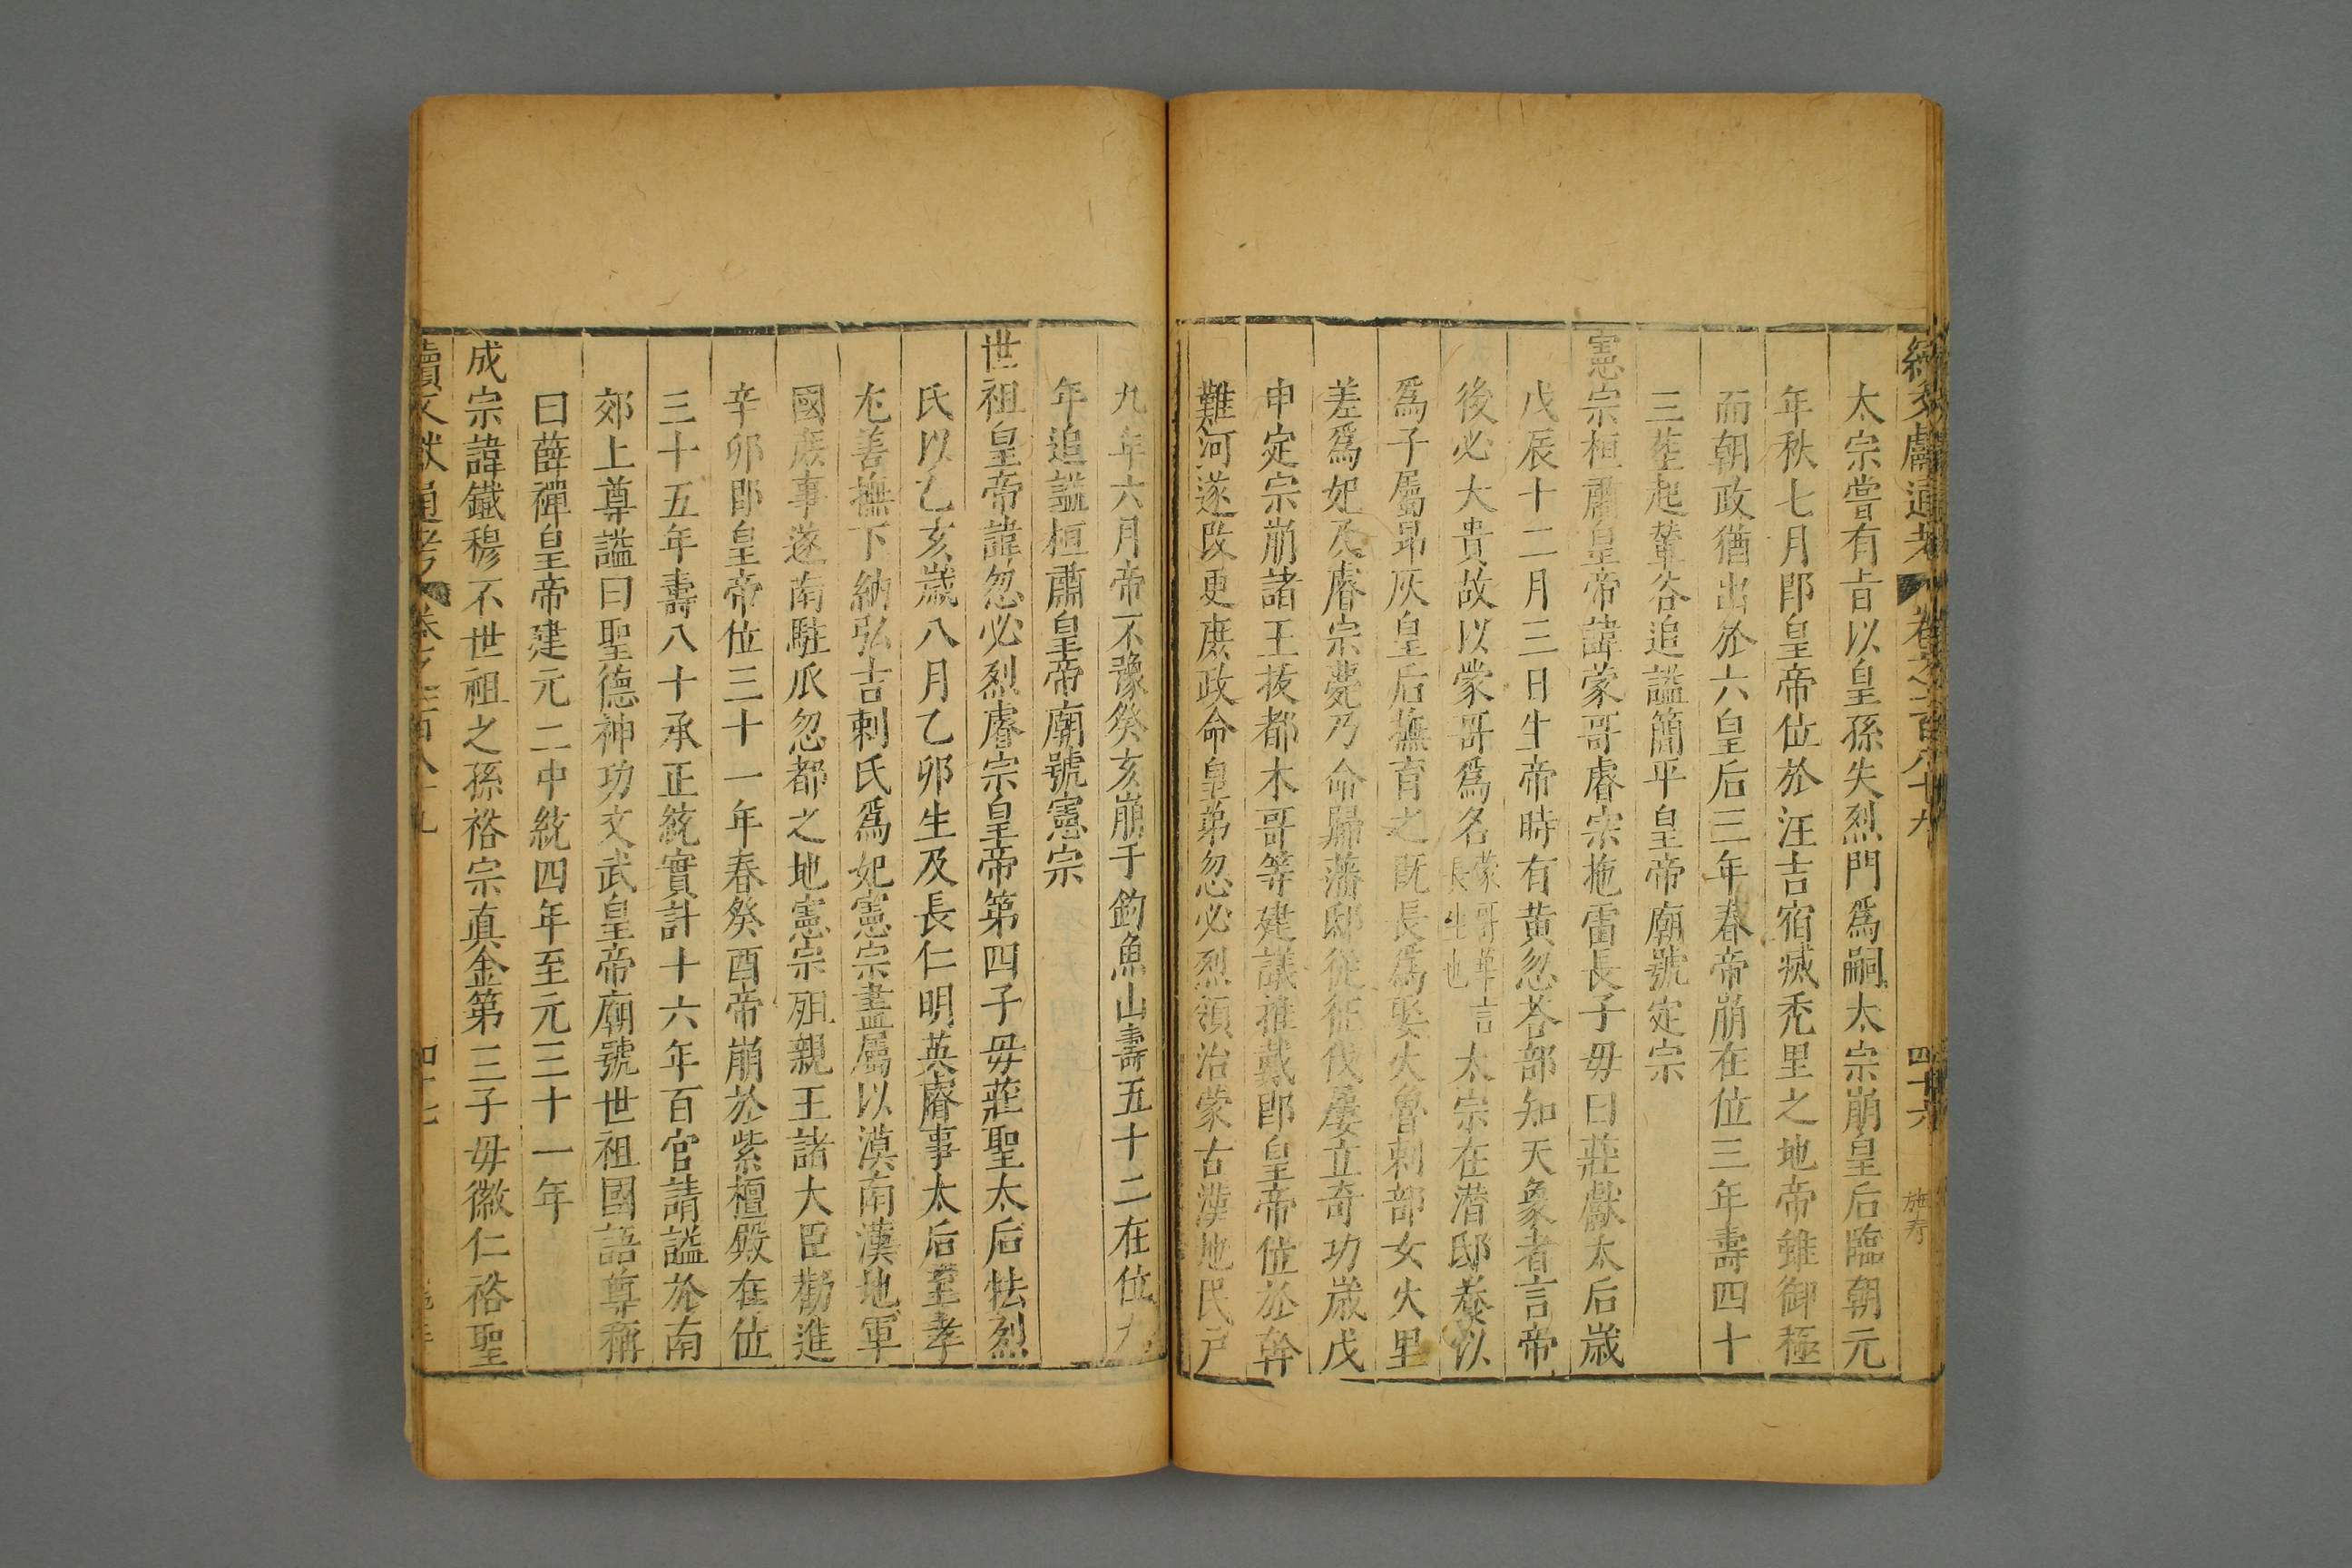 續文獻通考 卷之一百八十九 四十六 施方
太宗嘗有旨以皇孫失烈門爲嗣太宗崩皇后臨朝元
年秋七月卽皇帝位於汪吉宿滅禿里之地帝雖御極
而朝政猶出於六皇后三年春帝崩在位三年壽四十
三塟起輦谷追謚簡平皇帝廟號定宗
憲宗桓肅皇帝諱蒙哥睿宗拖雷長子毋曰莊獻太后歲
戊辰十二月三日生帝時有黄忽荅部知天象者言帝
後必大貴故以蒙哥爲名蒙哥華言長生也太宗在潛邸養以
爲子屬昂灰皇后撫育之既長爲娶火魯剌部女火里
差爲妃及睿宗薨乃命歸藩邸從征伐屢立奇功歲戊
申定宗崩諸王拔都木哥等建議推戴卽皇帝位於斡
難河遂改更庶政命皇弟忽必烈領治蒙古漢地民戸
九年六月帝不豫癸亥崩于釣魚山壽五十二在位九
年追謚桓肅皇帝廟號憲宗
世祖皇帝諱忽必烈睿宗皇帝第四子毋莊聖太后怯烈
氏以乙亥歲八月乙卯生及長仁明英睿事太后至孝
尤善撫下納弘吉剌氏爲妃憲宗盡屬以漠南漢地軍
國庶事遂南駐爪忽都之地憲宗殂親王諸大臣勸進
辛卯卽皇帝位三十一年春癸酉帝崩於紫檀殿在位
三十五年壽八十承正統實計十六年百官請謚於南
郊上尊謚曰聖德神功文武皇帝廟號世祖國語尊稱
曰薛禪皇帝建元二中統四年至元三十一年
成宗諱鐵穆不世祖之孫裕宗真金第三子毋徽仁裕聖
續文獻通考 卷之一百八十九 四十七